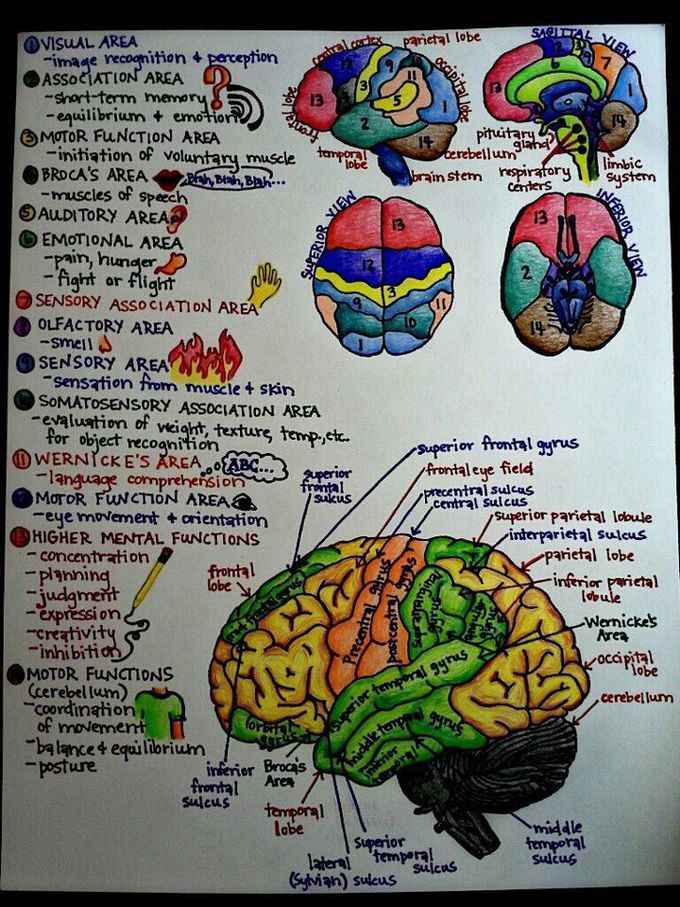 1 VISUAL AREA
-image recognition & perception
2 ASSOCIATION AREA
-short-term memory
-equilibrium & emotion
3 MOTOR FUNCTION AREA
-initiation of voluntary muscle
BROCA'S AREA Blah, Blah, Blah...
-muscles of speech
5 AUDITORY AREA
6 EMOTIONAL AREA
-pain, hunger
-fight or flight
7 SENSORY ASSOCIATION AREA
OLFACTORY AREA
-smell
9 SENSORY AREA
-sensation from muscle & skin
SOMATOSENSORY ASSOCIATION AREA
-evaluation of weight, texture, temp., etc.
for object recognition
11 WERNICKE'S AREA ABC...
-language comprehension
12 MOTOR FUNCTION AREA
-eye movement & orientation
13 HIGHER MENTAL FUNCTIONS
-concentration
-planning
-judgment
-expression
-creativity
-inhibition
MOTOR FUNCTIONS
(cerebellum)
-coordination
of movement
-balance & equilibrium
-posture
central cortex
parietal lobe
occipital lobe
frontal lobe
temporal
lobe
cerebellum
brain stem
12
9
3
11
13
5
1
2
14
SAGITTAL VIEW
12
3
9
7
6
13
1
14
pituitary
gland
respiratory
centers
limbic
system
SUPERIOR VIEW
13
12
3
9
11
10
1
INFERIOR VIEW
13
2
14
superior frontal gyrus
superior
frontal
sulcus
frontal eye field
precentral sulcus
central sulcus
superior parietal lobule
interparietal sulcus
parietal lobe
inferior parietal
lobule
Wernicke's
Area
occipital
lobe
cerebellum
frontal
lobe
Precentral gyrus
postcentral gyrus
supramarginal
gyrus
angular
gyrus
superior temporal gyrus
middle temporal gyrus
inferior
temporal
orbital
gyrus
inferior
frontal
sulcus
Broca's
Area
temporal
lobe
lateral
(Sylvian) sulcus
superior
temporal
sulcus
middle
temporal
sulcus